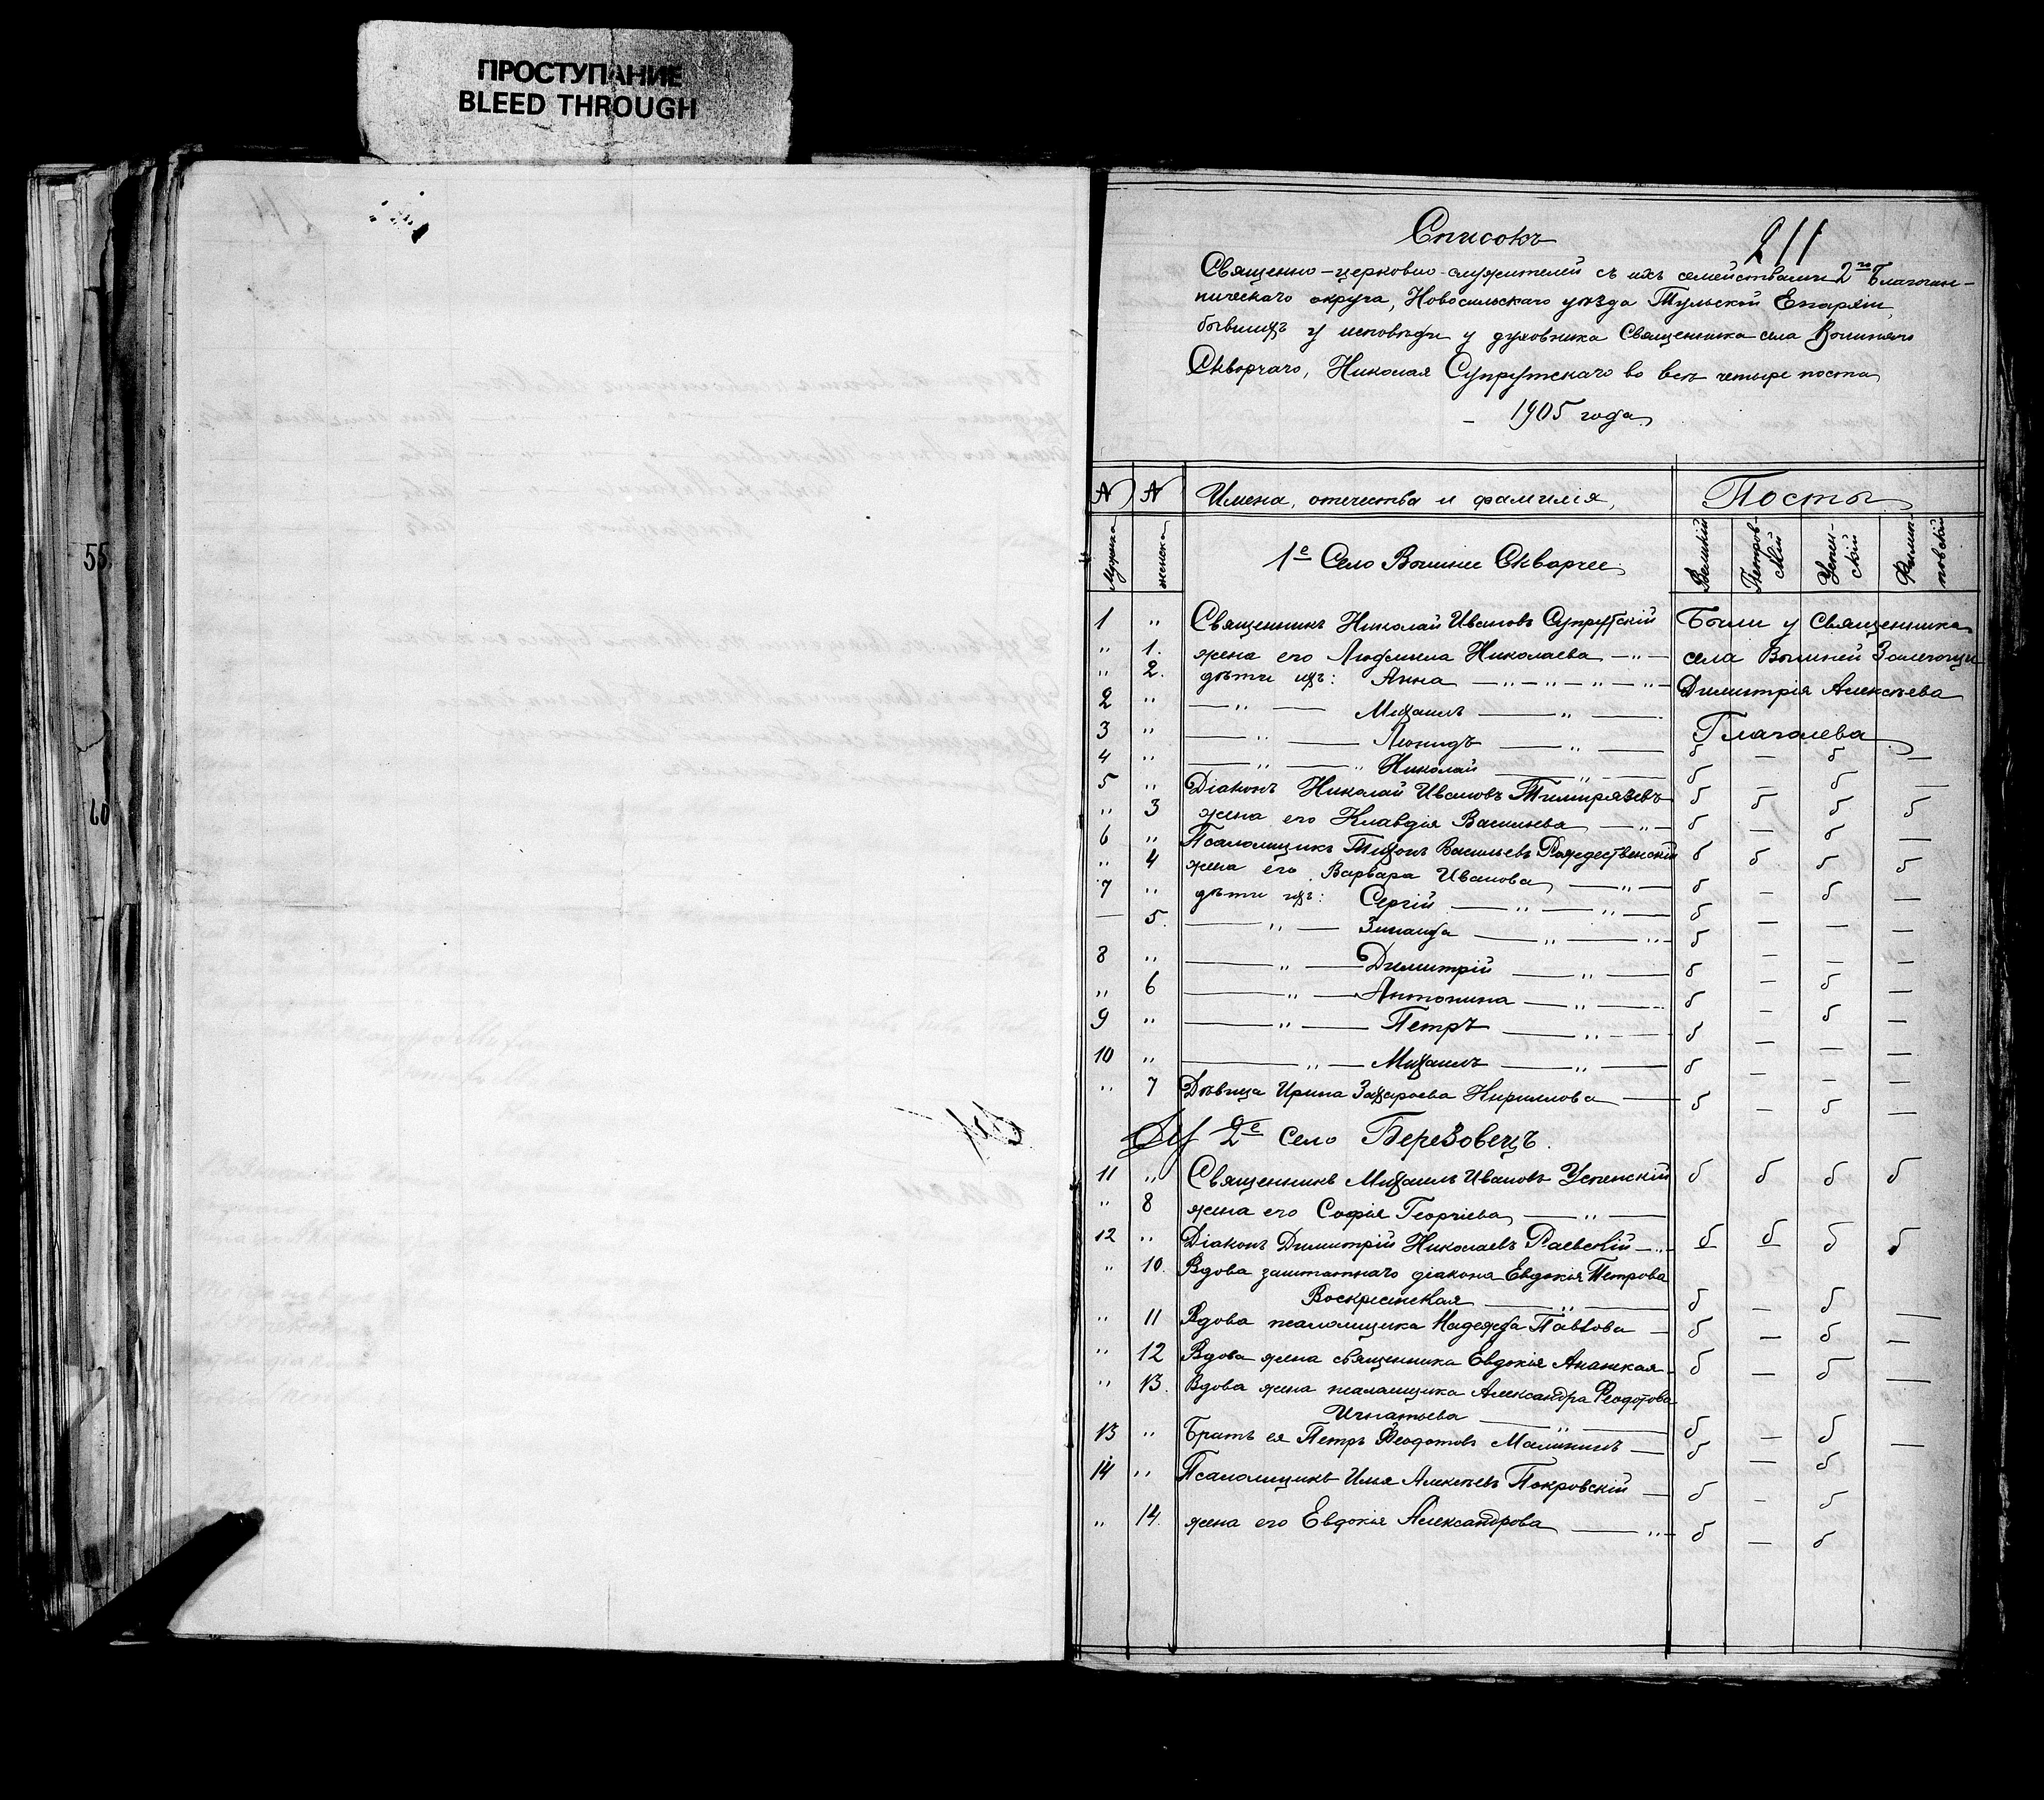 ПРОСТУПАНИЕ
BLEED THROUGH
55
60
211
Списокъ
Священно-церковно-служителей съ ихъ семействами 2го Благочин-
ническаго округа, Новосильскаго уѣзда Тульской Епархіи,
бывшихъ у исповѣди у духовника Священника села Вышняго
Скворчаго, Николая Супрутскаго во всѣ четыре поста
1905 года
№ № Имена, отечества и фамилія, Посты
Мужска женска 1е Село Вышнее Скворчее Великій Петров-скій Успен-скій Филип-повскій
1 " Священникъ Николай Ивановъ Супрутскій Были у Священника
" 1. жена его Людмила Николаева — " — села Вышней Залегощи
" 2. дѣти ихъ: Анна — " — " — " — " — Димитрія Алексѣева
2 " — " — Михаилъ — " — Глаголева
3 " — " — Леонидъ — " — б — б —
4 " — " — " Николай — " — б — б —
5 " Діаконъ Николай Ивановъ Тимирязевъ б б б б
" 3 жена его Клавдія Васильева — " — б — б —
6 " Псаломщикъ Тихонъ Васильевъ Рождественскій б б б б
" 4 жена его Варвара Иванова — " — б — б —
7 " дѣти ихъ: Сергій — " — " — б — — —
— 5. — " — Зинаида — " — " — б — — —
8 " — " — Димитрій — " — б — б —
" 6 — " — Антонина — " — б — б —
9 " — " — Петръ — " — б — — —
10 " — " — Михаилъ — " — б — — —
" 7 Дѣвица Ирина Захарова Кириллова — б — б —
2е село Березовецъ.
11 " Священникъ Михаилъ Ивановъ Успенскій б б б б
" 8 жена его Софія Георгіева — " —
12 " Діаконъ Димитрій Николаевъ Раевскій — " — б б б б
" 10. Вдова заштатнаго діакона Евдокія Петрова
Воскресенская — " — б — б —
" 11 Вдова псаломщика Надежда Павлова — б — б —
" 12 Вдова жена священника Евдокія б — б —
" 13. Вдова жена псаломщика Александра Феодотова
Игнатьева — " — б — б —
13 " Братъ ея Петръ Феодотовъ Малининъ — б — б
14 " Псаломщикъ Илья Алексѣевъ Покровскій — б — б
" 14. жена его Евдокія Александрова — " — б — б